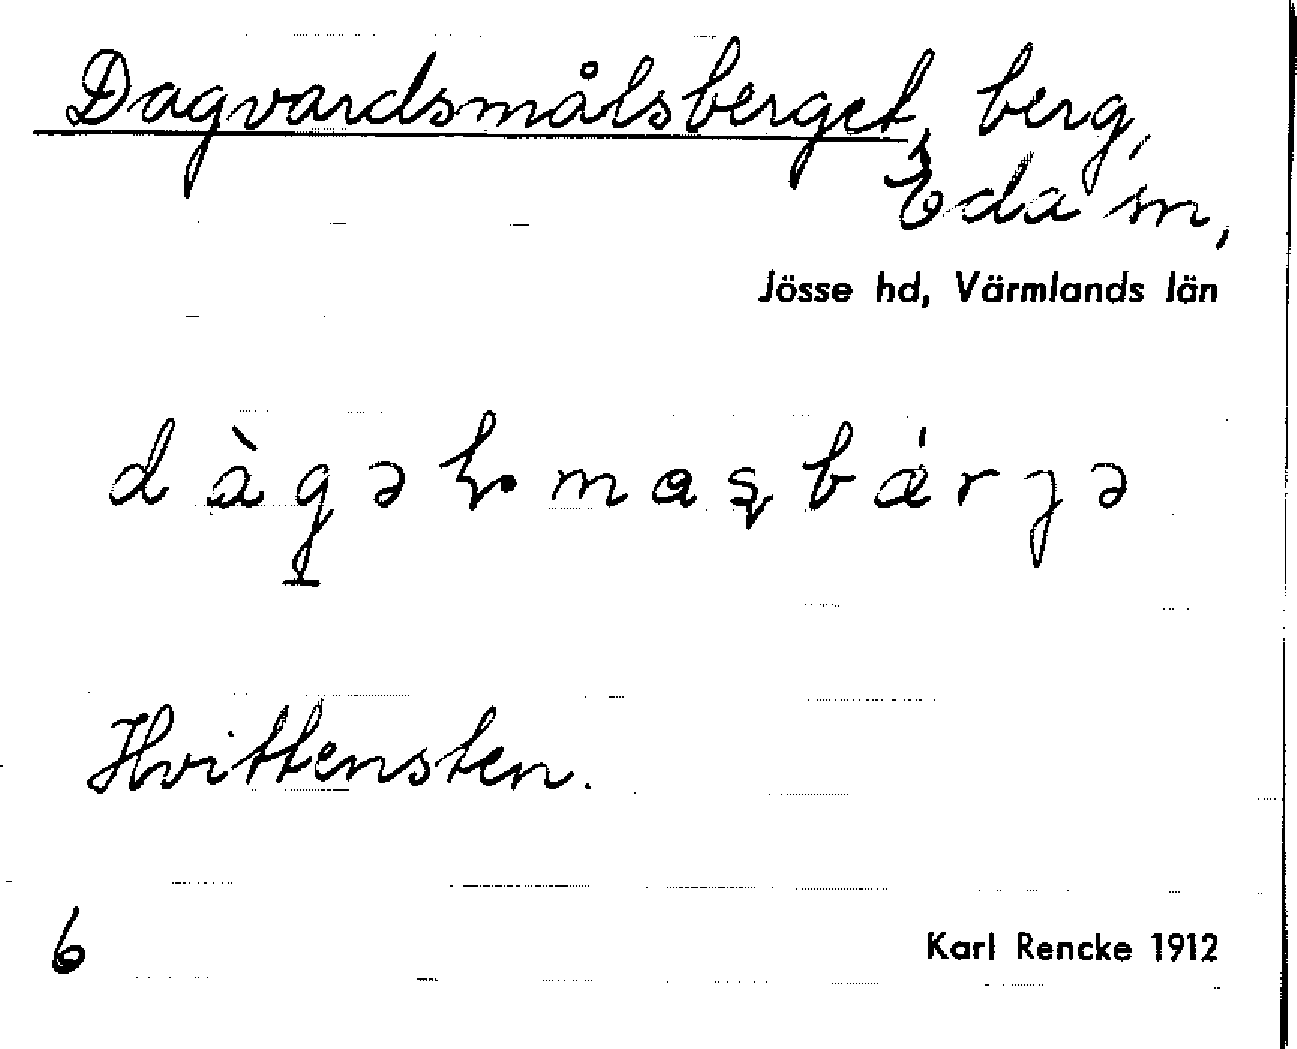 Dagvardsmålsberget, berg,
Eda sn,
Jösse hd, Värmlands län
Hvittensten.
6
Karl Rencke 1912